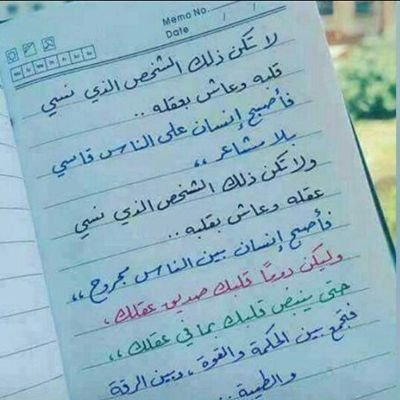 Memo No.
Date / /
لا تكن ذلك الشخص الذي نسي
قلبه وعاش بعقله ..
فأصبح إنسان على الناس قاسي
بلا مشاعر ،،
ولا تكن ذلك الشخص الذي نسي
عقله وعاش بقلبه ..
فأصبح إنسان بين الناس مجروح ،،
وليكن دومًا قلبك صديق عقلك ،
حتى ينبض قلبك بما في عقلك ،،
فتجمع بين الحكمة والقوة ، وبين الرقة
والطيبة ..